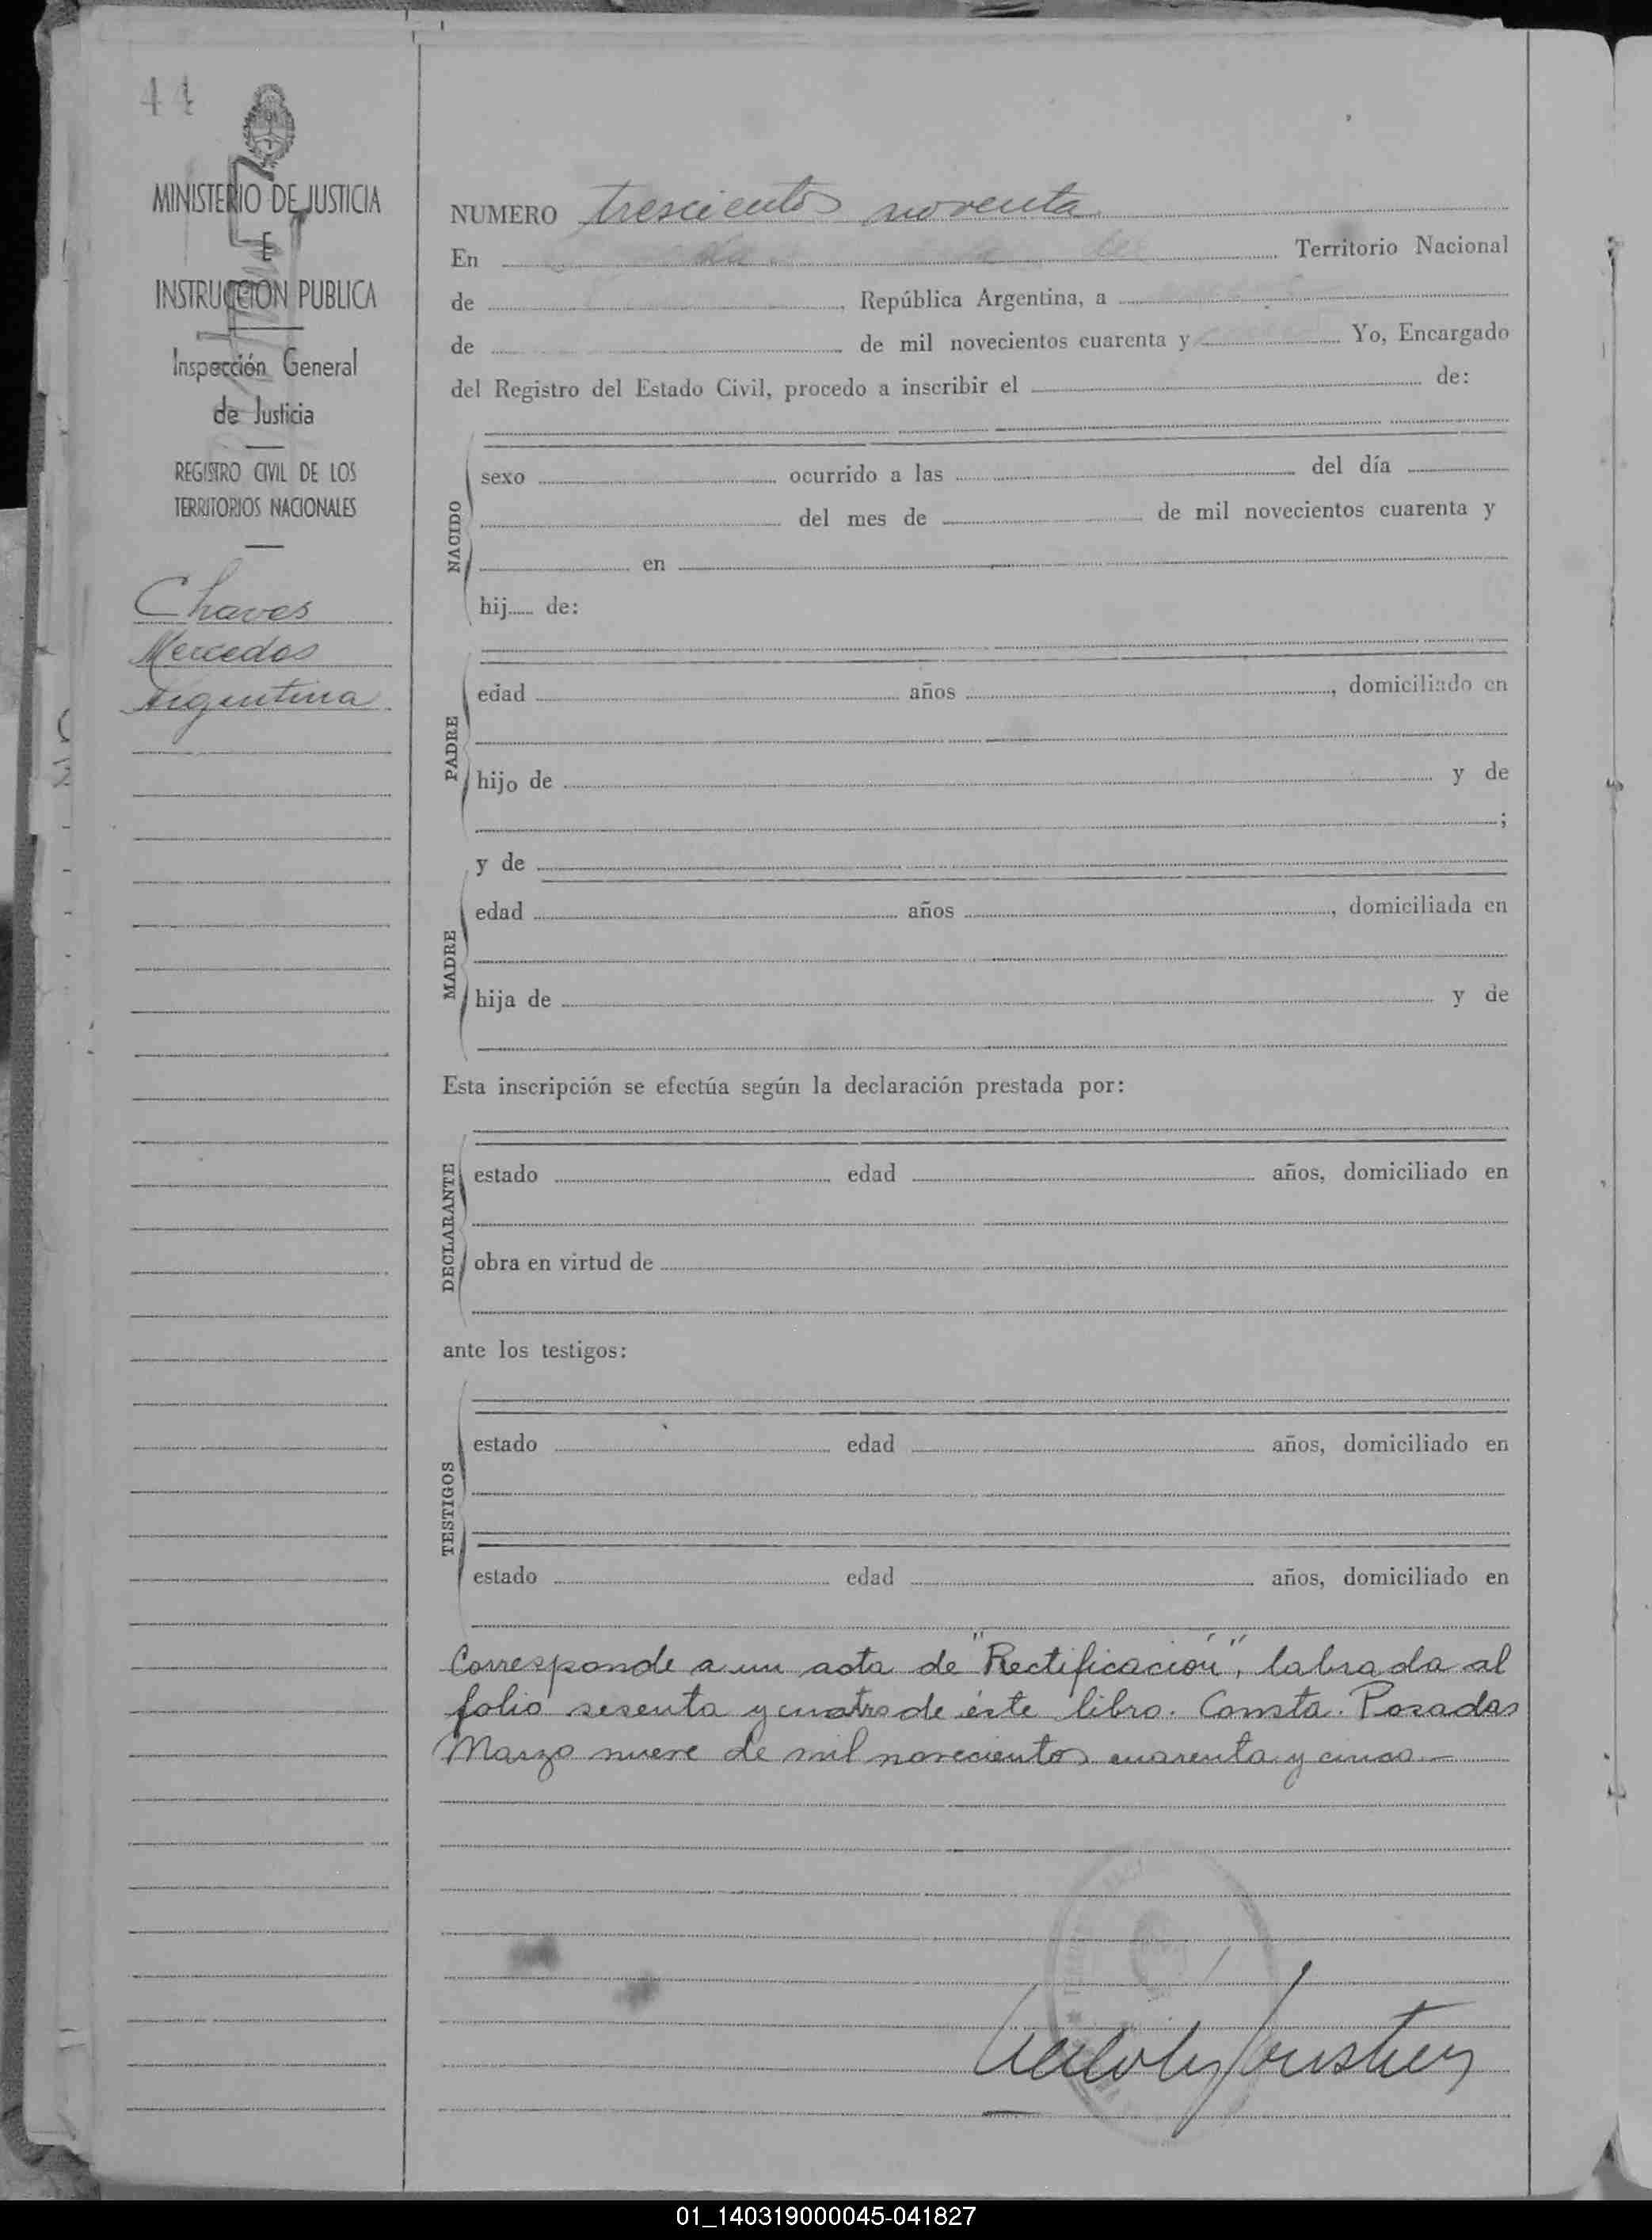 44
MINISTERIO DE JUSTICIA
E
INSTRUCCION PUBLICA
Inspección General
de Justicia
REGISTRO CIVIL DE LOS
TERRITORIOS NACIONALES
Chaves
Mercedes
Argentina
NUMERO trescientos noventa
En Territorio Nacional
de , República Argentina, a
de de mil novecientos cuarenta y Yo, Encargado
del Registro del Estado Civil, procedo a inscribir el de:
NACIDO
sexo ocurrido a las del día
del mes de de mil novecientos cuarenta y
en
hij de:
PADRE
edad años , domiciliado en
hijo de y de
;
y de
MADRE
edad años , domiciliada en
hija de y de
Esta inscripción se efectúa según la declaración prestada por:
DECLARANTE
estado edad años, domiciliado en
obra en virtud de
ante los testigos:
TESTIGOS
estado edad años, domiciliado en
estado edad años, domiciliado en
Corresponde a un acta de "Rectificación", labrada al
folio sesenta y cuatro de éste libro. Consta. Posadas
Marzo nueve de mil novecientos cuarenta y cinco.—
01_140319000045-041827